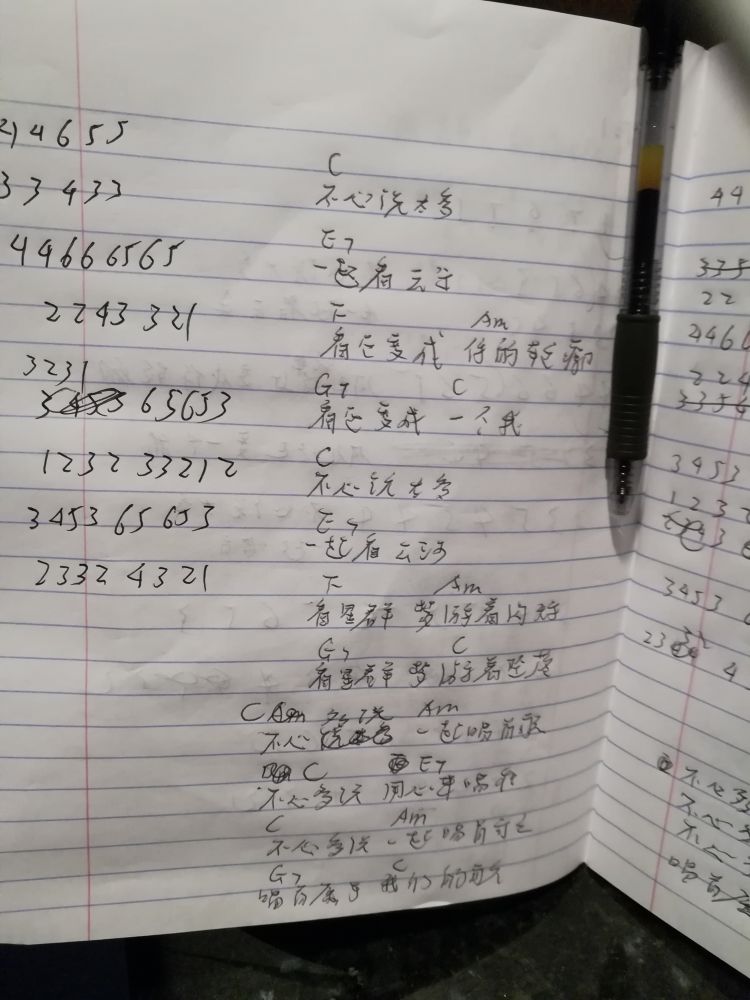 2)4655
33433
44666565
2243 321
3231
3 65653
1232 33212
3453 65653
2332 4321
C
不必说太多
E7
一起看云
F Am
看它变成 你的轮廓
G7 C
看它变成 一个我
C
不必说太多
E7
一起看云河
F Am
看星群 梦游着
G7 C
看星群 梦游着坠落
C Am 多说 Am
不必 一起唱首歌
C E7
不必多说 用心来唱和
C Am
不必多说 一起唱首
G7 C
唱首属于 我们的
44
335
22
2466
224
3354
3453
1232
3
3453
23 4
不必多
不必
不必
唱首属